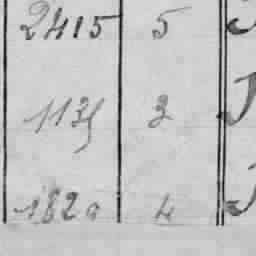 2415 5
1135 3
1820 4